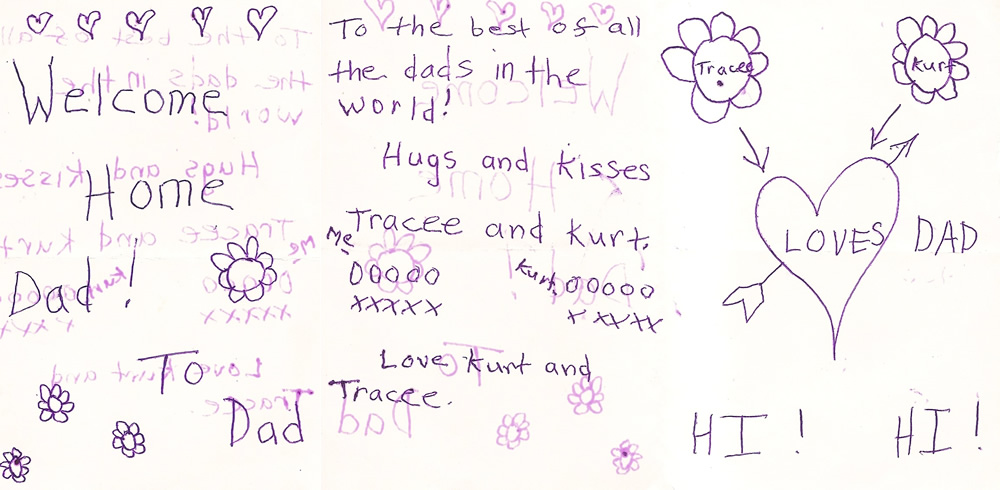 Welcome
Home
Dad!
To
Dad
To the best of all
the dads in the
world!
Hugs and kisses
Tracee and kurt.
Me
OOOOO
XXXXX
Kurt OOOOO
X XXXX
Love Kurt and
Tracee.
Tracee
Kurt
LOVES DAD
HI! HI!